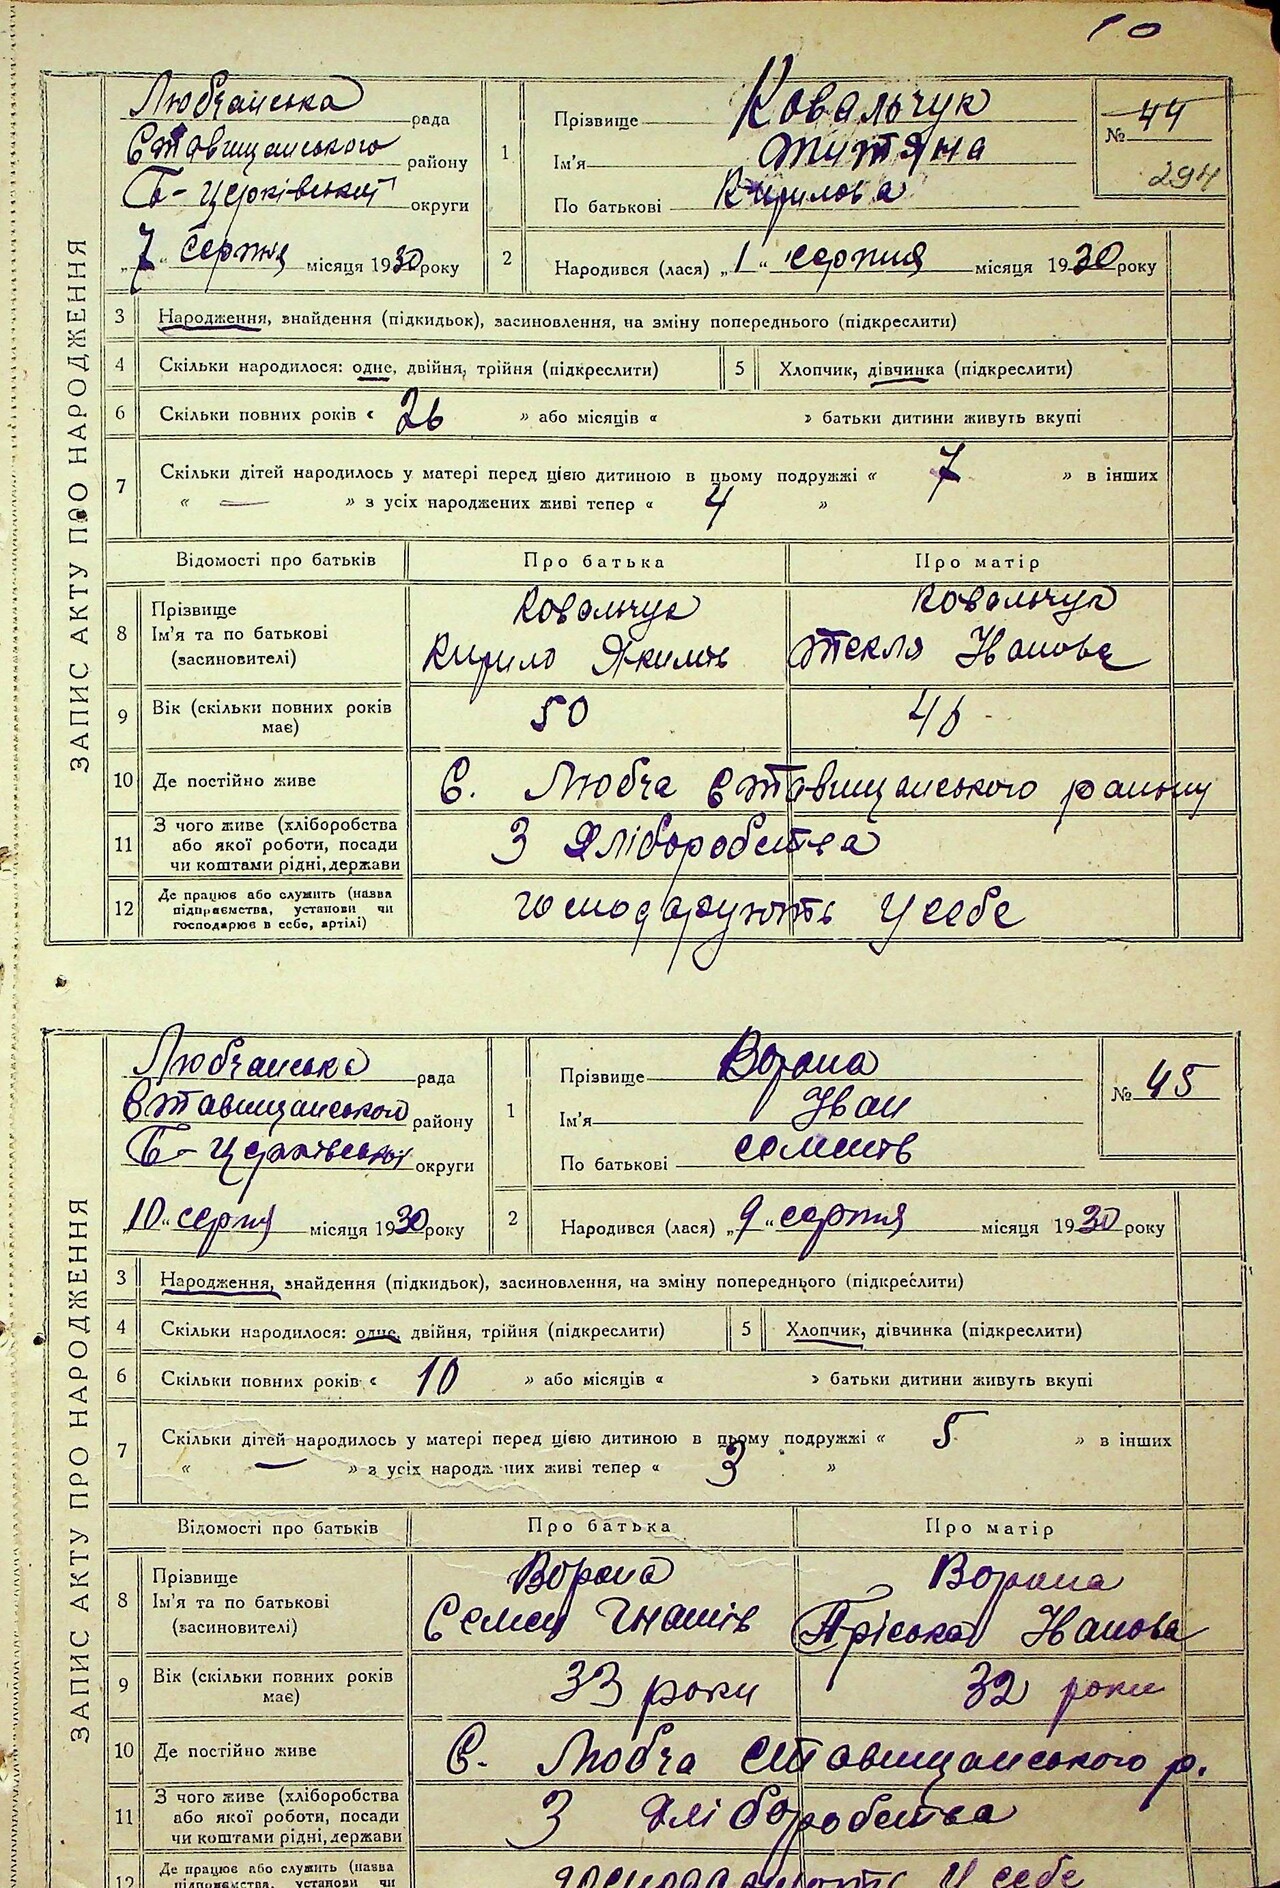 10
ЗАПИС АКТУ ПРО НАРОДЖЕННЯ
Любчанська рада
Ставищанського району
Б-Церківської округи
„7" серпня місяця 1930 року
1 Прізвище Ковальчук
Ім'я Титяна
По батькові Кирилова
№ 44
294
2 Народився (лася) „1" серпня місяця 1930 року
3 Народження, знайдення (підкидьок), засиновлення, на зміну попереднього (підкреслити)
4 Скільки народилося: одне, двійня, трійня (підкреслити) 5 Хлопчик, дівчинка (підкреслити)
6 Скільки повних років « 26 » або місяців « » батьки дитини живуть вкупі
7 Скільки дітей народилось у матері перед цією дитиною в цьому подружжі « 7 » в інших
« — » з усіх народжених живі тепер « 4 »
Відомості про батьків Про батька Про матір
8 Прізвище Ковальчук Ковальчук
Ім'я та по батькові Кирило Якимів Текля Іванова
(засиновителі)
9 Вік (скільки повних років має) 50 46
10 Де постійно живе С. Любча Ставищанського району
11 З чого живе (хліборобства З хліборобства
або якої роботи, посади
чи коштами рідні, держави
12 Де працює або служить (назва господарують у себе
підприємства, установи чи
господарює в себе, артілі)
ЗАПИС АКТУ ПРО НАРОДЖЕННЯ
Любчанська рада
Ставищанського району
Б-Церківської округи
10 „ серпня місяця 1930 року
1 Прізвище Ворона
Ім'я Іван
По батькові Семенів
№ 45
2 Народився (лася) „9" серпня місяця 1930 року
3 Народження, знайдення (підкидьок), засиновлення, на зміну попереднього (підкреслити)
4 Скільки народилося: одне, двійня, трійня (підкреслити) 5 Хлопчик, дівчинка (підкреслити)
6 Скільки повних років « 10 » або місяців « » батьки дитини живуть вкупі
7 Скільки дітей народилось у матері перед цією дитиною в цьому подружжі « 5 » в інших
« — » з усіх народжених живі тепер « 3 »
Відомості про батьків Про батька Про матір
8 Прізвище Ворона Ворона
Ім'я та по батькові Семен Гнатів Пріська Іванова
(засиновителі)
9 Вік (скільки повних років має) 33 роки 32 роки
10 Де постійно живе С. Любча Ставищанського р.
11 З чого живе (хліборобства З хліборобства
або якої роботи, посади
чи коштами рідні, держави
12 Де працює або служить (назва господарюють у себе
підприємства, установи чи